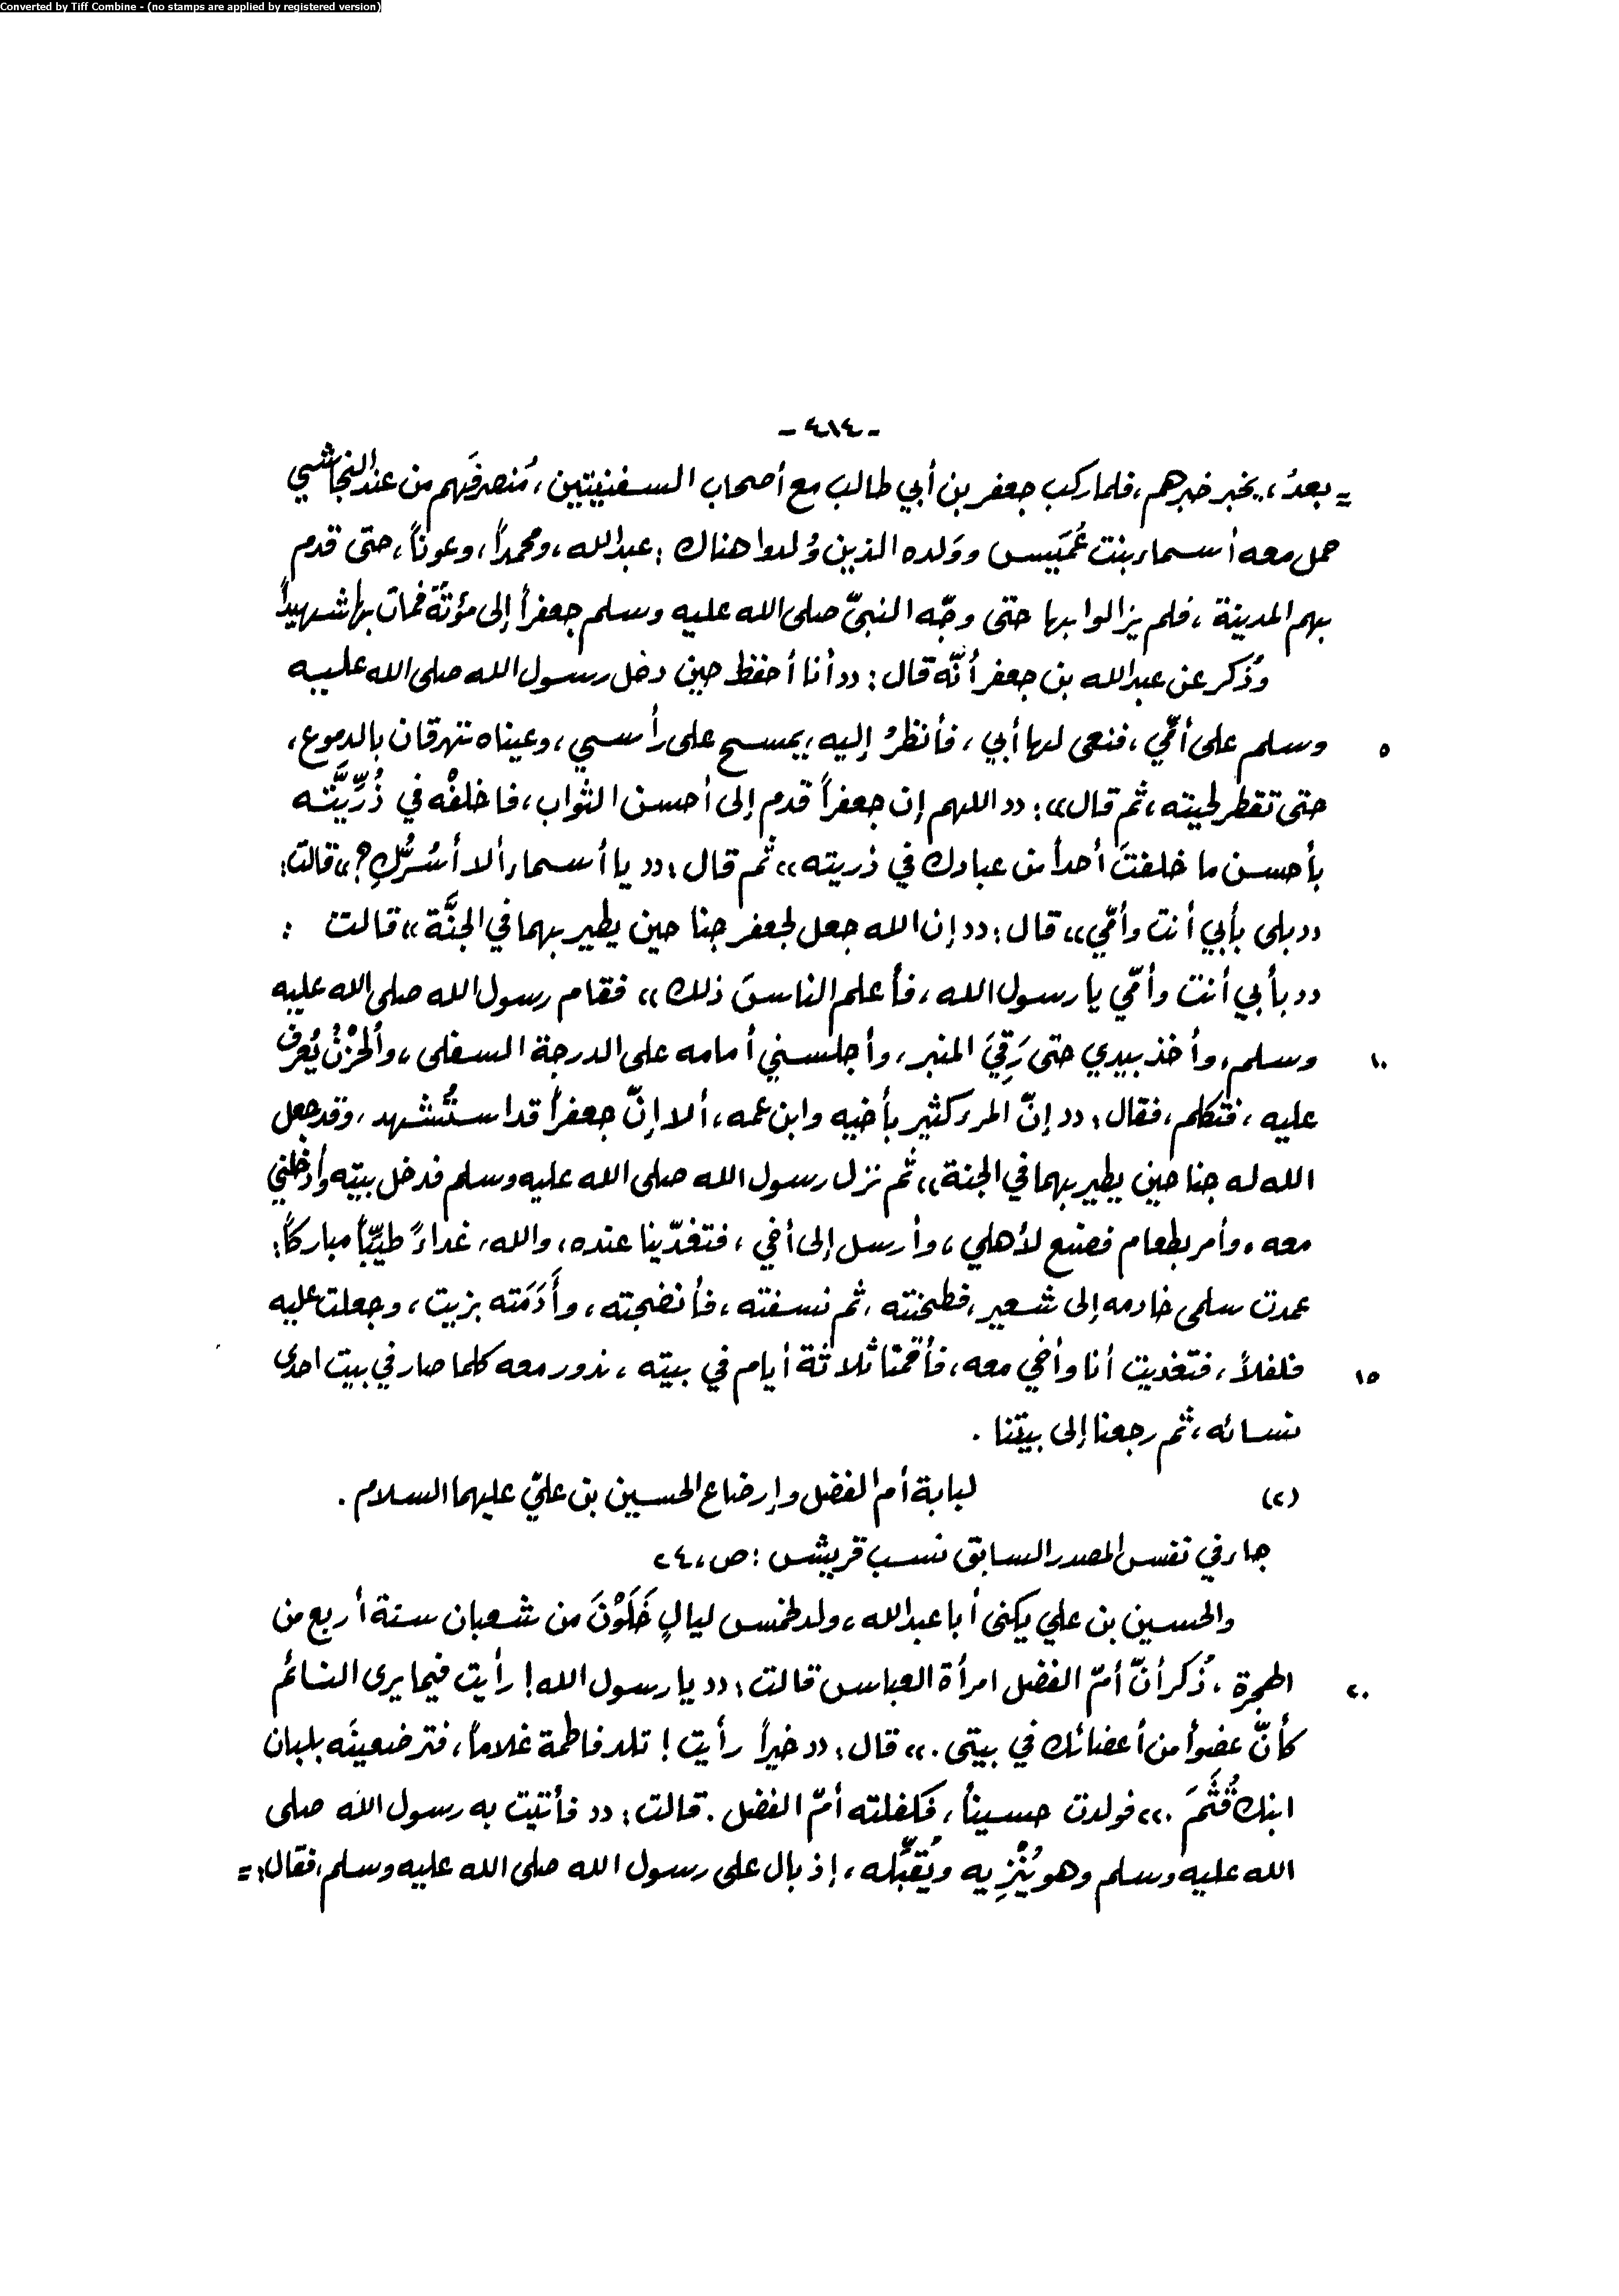 Converted by Tiff Combine - (no stamps are applied by registered version)
- ٤١٤ -
= بعدُ، يخبر خبرهم، فلما ركب جعفر بن أبي طالب مع أصحاب السفنيتين، مُنصرفَهم من عند النجاشي
حمل معه أسماء بنت عُمَيس ووَلده الذين وُلدوا هناك : عبدالله، ومحمداً، وعوناً، حتى قدم
بهم المدينة، فلم يزالوا بها حتى وجّه النبيّ صلى الله عليه وسلم جعفراً إلى مؤتة فمات بها شهيداً
وذُكر عن عبدالله بن جعفر أنّه قال: «أنا أحفظ حين دخل رسول الله صلى الله عليه
٥ وسلم على أمّي، فنعى لها أبي، فأنظرُ إليه، يمسح على رأسي، وعيناه تهرقان بالدموع،
حتى تقطر لحيته، ثم قال»: «اللهم إن جعفراً قدم إلى أحسن الثواب، فاخلفْه في ذُرِّيَّته
بأحسن ما خلفتَ أحداً من عبادك في ذريته» ثم قال: «يا أسماء ألا أسُرُّكِ؟» قالت:
«بلى بأبي أنت وأمّي» قال: «إن الله جعل لجعفر جناحين يطير بهما في الجنَّة» قالت :
«بأبي أنت وأمّي يا رسول الله، فأعلم الناسَ ذلك» فقام رسول الله صلى الله عليه
١٠ وسلم، وأخذ بيدي حتى رَقِيَ المنبر، وأجلسني أمامه على الدرجة السفلى، والحُزْنُ يُعرف
عليه، فتكلم، فقال: «إنّ المرء كثير بأخيه وابن عمه، ألا إنّ جعفراً قد استُشهد، وقد جعل
الله له جناحين يطير بهما في الجنة» ثم نزل رسول الله صلى الله عليه وسلم فدخل بيته وأدخلني
معه، وأمر بطعام فصنع لأهلي، وأرسل إلى أخي، فتغدّينا عنده، والله، غداءً طيّباً مباركاً:
عمدت سلمى خادمه إلى شعير، فطحنته، ثم نسفته، فأنضجته، وأَدَمَته بزيت، وجعلت عليه
١٥ فلفلاً، فتغديت أنا وأخي معه، فأقمنا ثلاثة أيام في بيته، ندور معه كلما صار في بيت احدى
نسائه، ثم رجعنا إلى بيتنا .
(٢) لبابة أم الفضل وإرضاع الحسين بن عليّ عليهما السلام .
جاء في نفس المصدر السابق نسب قريش : ص، ٢٤
والحسين بن علي يكنى أبا عبدالله، ولد لخمس ليالٍ خَلَوْنَ من شعبان سنة أربع من
٢٠ الهجرة، ذُكر أنّ أمّ الفضل امرأة العباس قالت: «يا رسول الله! رأيت فيما يرى النائم
كأنّ عضواً من أعضائك في بيتى.» قال: «خيراً رأيت! تلد فاطمة غلاماً، فترضعينه بلبان
ابنك قُثَمَ.» فولدت حسيناً، فكفلته أمّ الفضل. قالت: «فأتيت به رسول الله صلى
الله عليه وسلم وهو يُنْزِيه ويُقبِّله، إذ بال على رسول الله صلى الله عليه وسلم، فقال: =